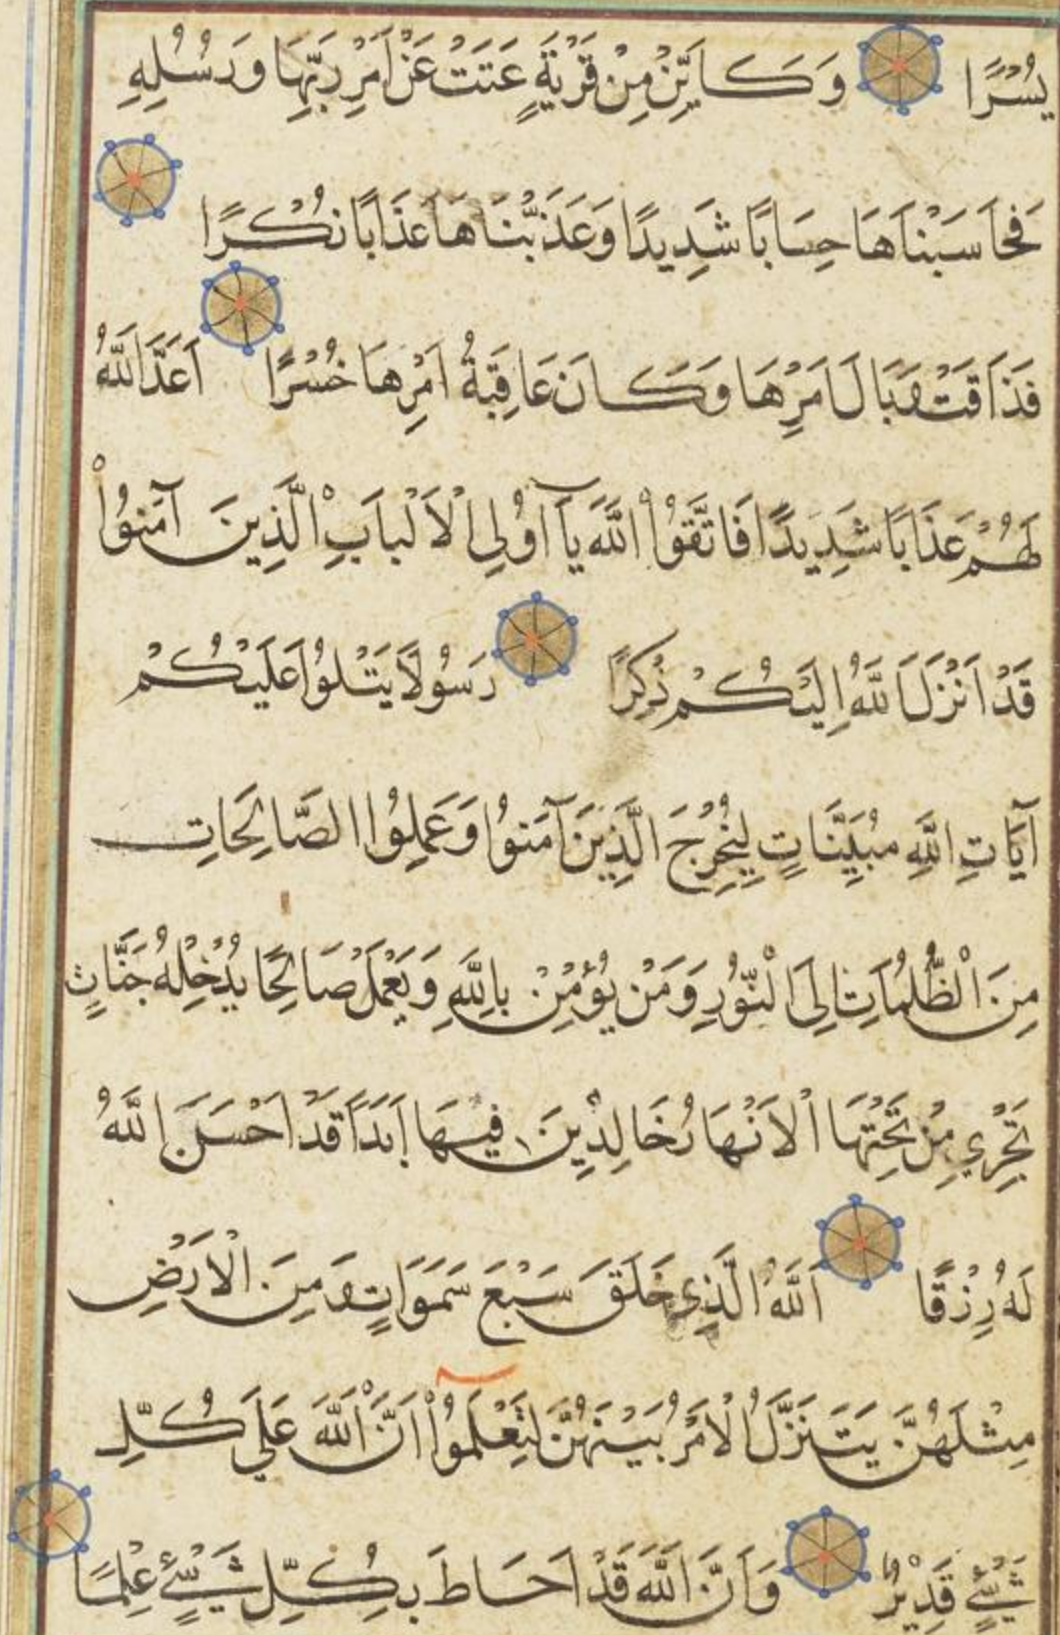 يُسْرًا وَكَاَيِّنْ مِنْ قَرْيَةٍ عَتَتْ عَنْ اَمْرِ رَبِّهَا وَرُسُلِهِ
فَحَاسَبْنَاهَا حِسَابًا شَدِيدًا وَعَذَّبْنَاهَا عَذَابًا نُكْرًا
فَذَاقَتْ وَبَالَ اَمْرِهَا وَكَانَ عَاقِبَةُ اَمْرِهَا خُسْرًا اَعَدَّ اللَّهُ
لَهُمْ عَذَابًا شَدِيدًا فَاتَّقُوْا اللَّهَ يَآ اُوْلِى الْاَلْبَابِ الَّذِينَ آمَنُوْا
قَدْ اَنْزَلَ اللَّهُ اِلَيْكُمْ ذِكْرًا رَسُولًا يَتْلُوْا عَلَيْكُمْ
آيَاتِ اللَّهِ مُبَيِّنَاتٍ لِيُخْرِجَ الَّذِينَ آمَنُوْا وَعَمِلُوْا الصَّالِحَاتِ
مِنَ الْظُّلُمَاتِ اِلَى الْنُّوْرِ وَمَنْ يُؤْمِنْ بِاللَّهِ وَيَعْمَلْ صَالِحًا يُدْخِلْهُ جَنَّاتٍ
تَجْرِي مِنْ تَحْتِهَا الْاَنْهَارُ خَالِدِينَ فِيهَا اَبَدًا قَدْ اَحْسَنَ اللَّهُ
لَهُ رِزْقًا اَللَّهُ الَّذِى خَلَقَ سَبْعَ سَمَوَاتٍ وَمِنَ الْاَرْضِ
مِثْلَهُنَّ يَتَنَزَّلُ الْاَمْرُ بَيْنَهُنَّ لِتَعْلَمُوْا اَنَّ اللَّهَ عَلَى كُلِّ
شَيْءٍ قَدِيْرٌ وَاَنَّ اللَّهَ قَدْ اَحَاطَ بِكُلِّ شَيْءٍ عِلْمًا